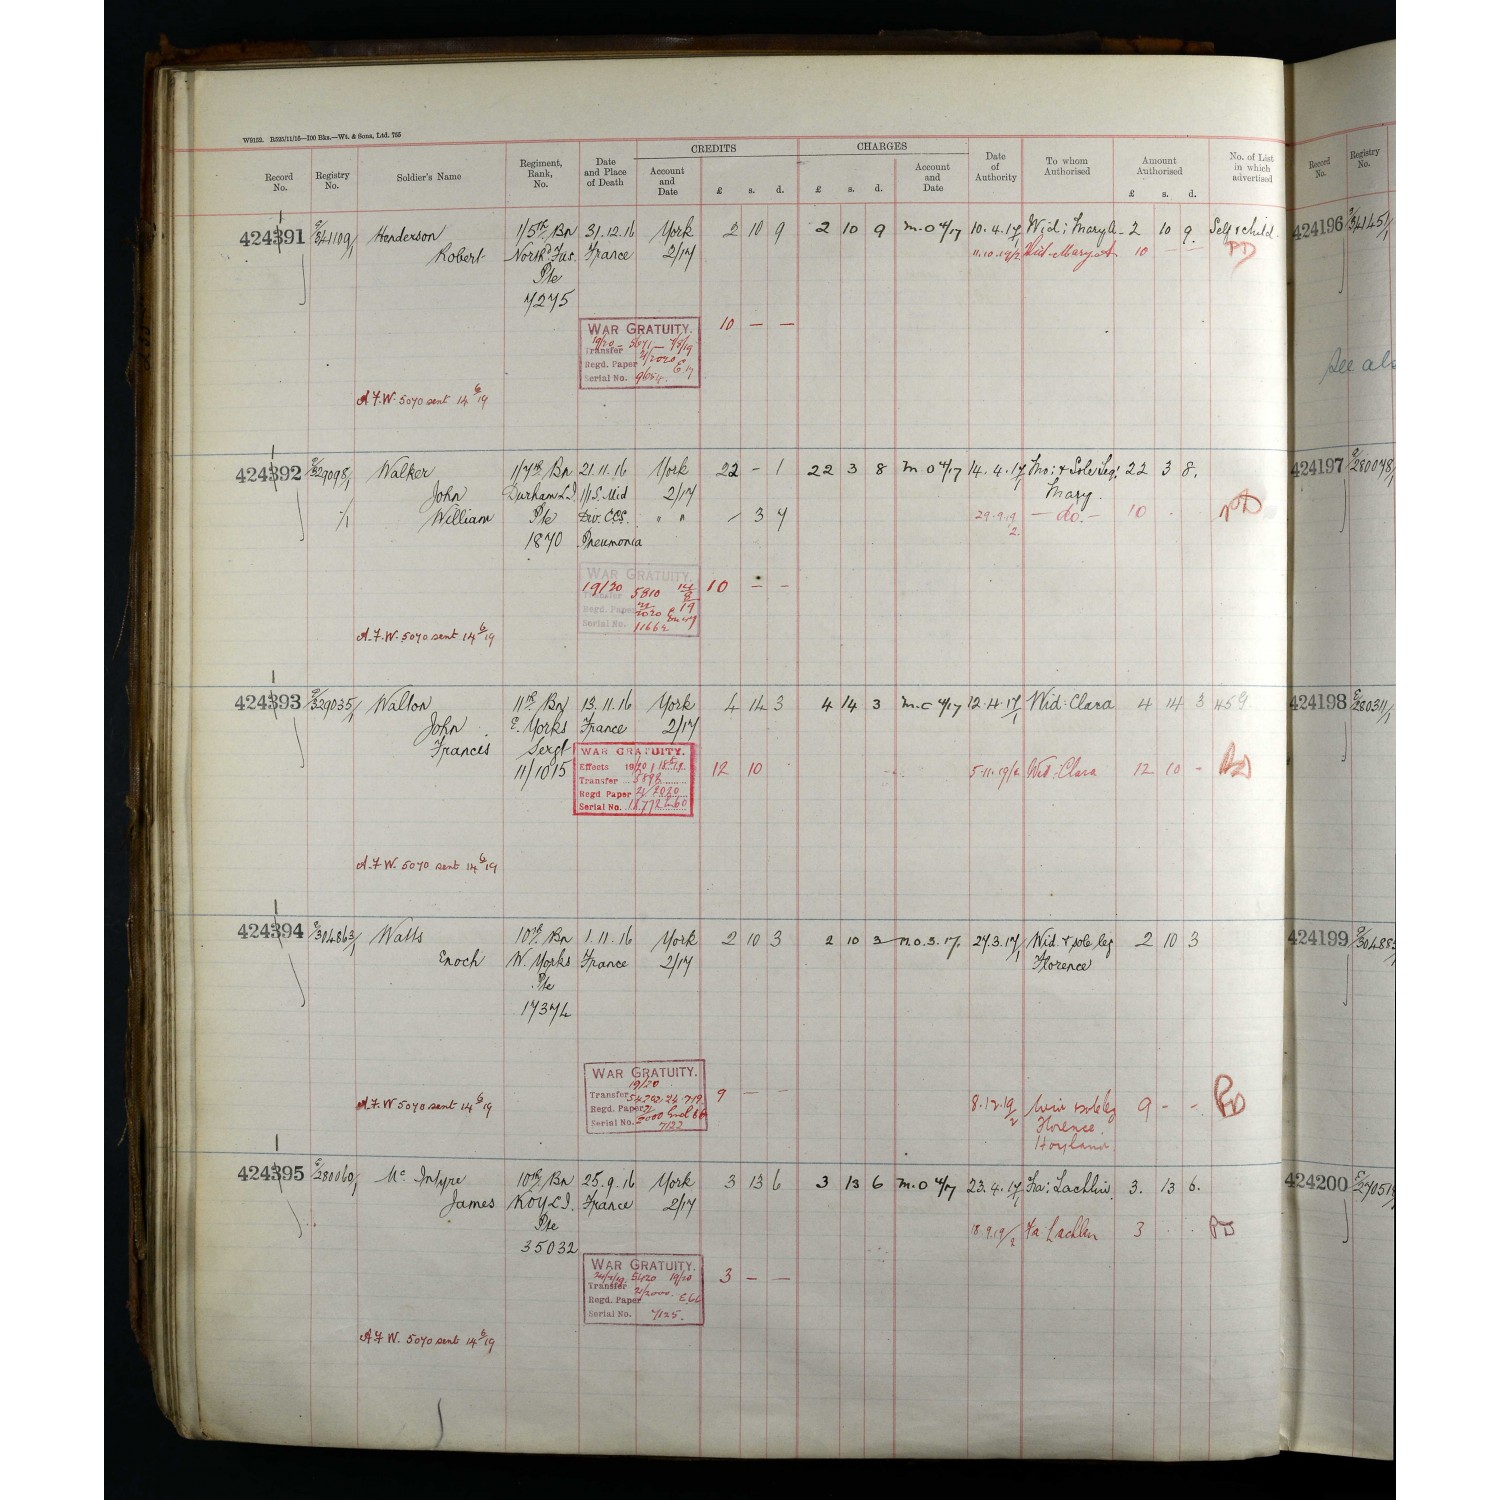 W9152. R525/11/16—100 Bks.—Wt. & Sons, Ltd. 755
CREDITS CHARGES
Record No. Registry No. Soldier's Name Regiment, Rank, No. Date and Place of Death Account and Date £ s. d. £ s. d. Account and Date Date of Authority To whom Authorised Amount Authorised £ s. d. No. of List in which advertised Record No. Registry No.
424391 E/341109/1 Henderson 1/5th Bn 31.12.16 York 2 10 9 2 10 9 M.O 4/17 10.4.17/1 Wid: Mary A. 2 10 9. Self & child 424196 341451/1
Robert North'd Fus. France 2/17 11.10.19/2 Wid- Mary A 10 — — PD
Pte
7275
WAR GRATUITY. 10 — —
19/20
Transfer
Regd. Paper 21/2020
Serial No.
See als
A.F.W. 5070 sent 14 6/19
424392 E/329098/1 Walker 1/7th Bn 21.11.16 York 22 - 1 22 3 8 M.O 4/17 14.4.17/1 Mo: & Sole Leg: 22 3 8. 424197 280078/1
John Durham L.I. 1/1 S. Mid 2/17 Mary.
·/1 William Pte Div. CCS. " " / 3 7 29.9.19/2 — do. — 10 PD
1870 Pneumonia
WAR GRATUITY. 10 — —
19/20 5810
Transfer
Regd. Paper 21/2020
Serial No. 11662
A.F.W. 5070 sent 14 6/19
424393 E/329035/1 Walton 11th Bn 13.11.16 York 4 14 3 4 14 3 M.O 4/17 12.4.17/1 Wid: Clara 4 14 3 459 424198 E/280311/1
John E. Yorks France 2/17
Frances Sergt
11/1015
WAR GRATUITY.
Effects 19/20
Transfer
Regd Paper 21/2020
Serial No.
12 10 5.11.19/2 Wid: Clara 12 10 - PD
A.F.W. 5070 sent 14 6/19
424394 E/304863/1 Watts 10th Bn 1.11.16 York 2 10 3 2 10 3 M.O.3.17. 27.3.17/1 Wid & sole leg 2 10 3 424199
Enoch W. Yorks France 2/17 Florence
Pte
17374
WAR GRATUITY. 9 — —
19/20
Transfer
Regd. Paper
Serial No. 7122
A.F.W. 5070 sent 14 6/19 8.12.19/2 Wid & sole leg 9 - - PD
Florence
424395 E/280060/1 Mc Intyre 10th Bn 25.9.16 York 3 13 6 3 13 6 M.O 4/17 23.4.17/1 Fa: Lachlin. 3. 13 6. 424200
James KOYLI. France 2/17
Pte 18.9.19/2 Fa Lachlin 3 PD
35032
WAR GRATUITY. 3 — —
Transfer
Regd. Paper 21/2000.
Serial No. 7125.
A.F.W. 5070 sent 14 6/19